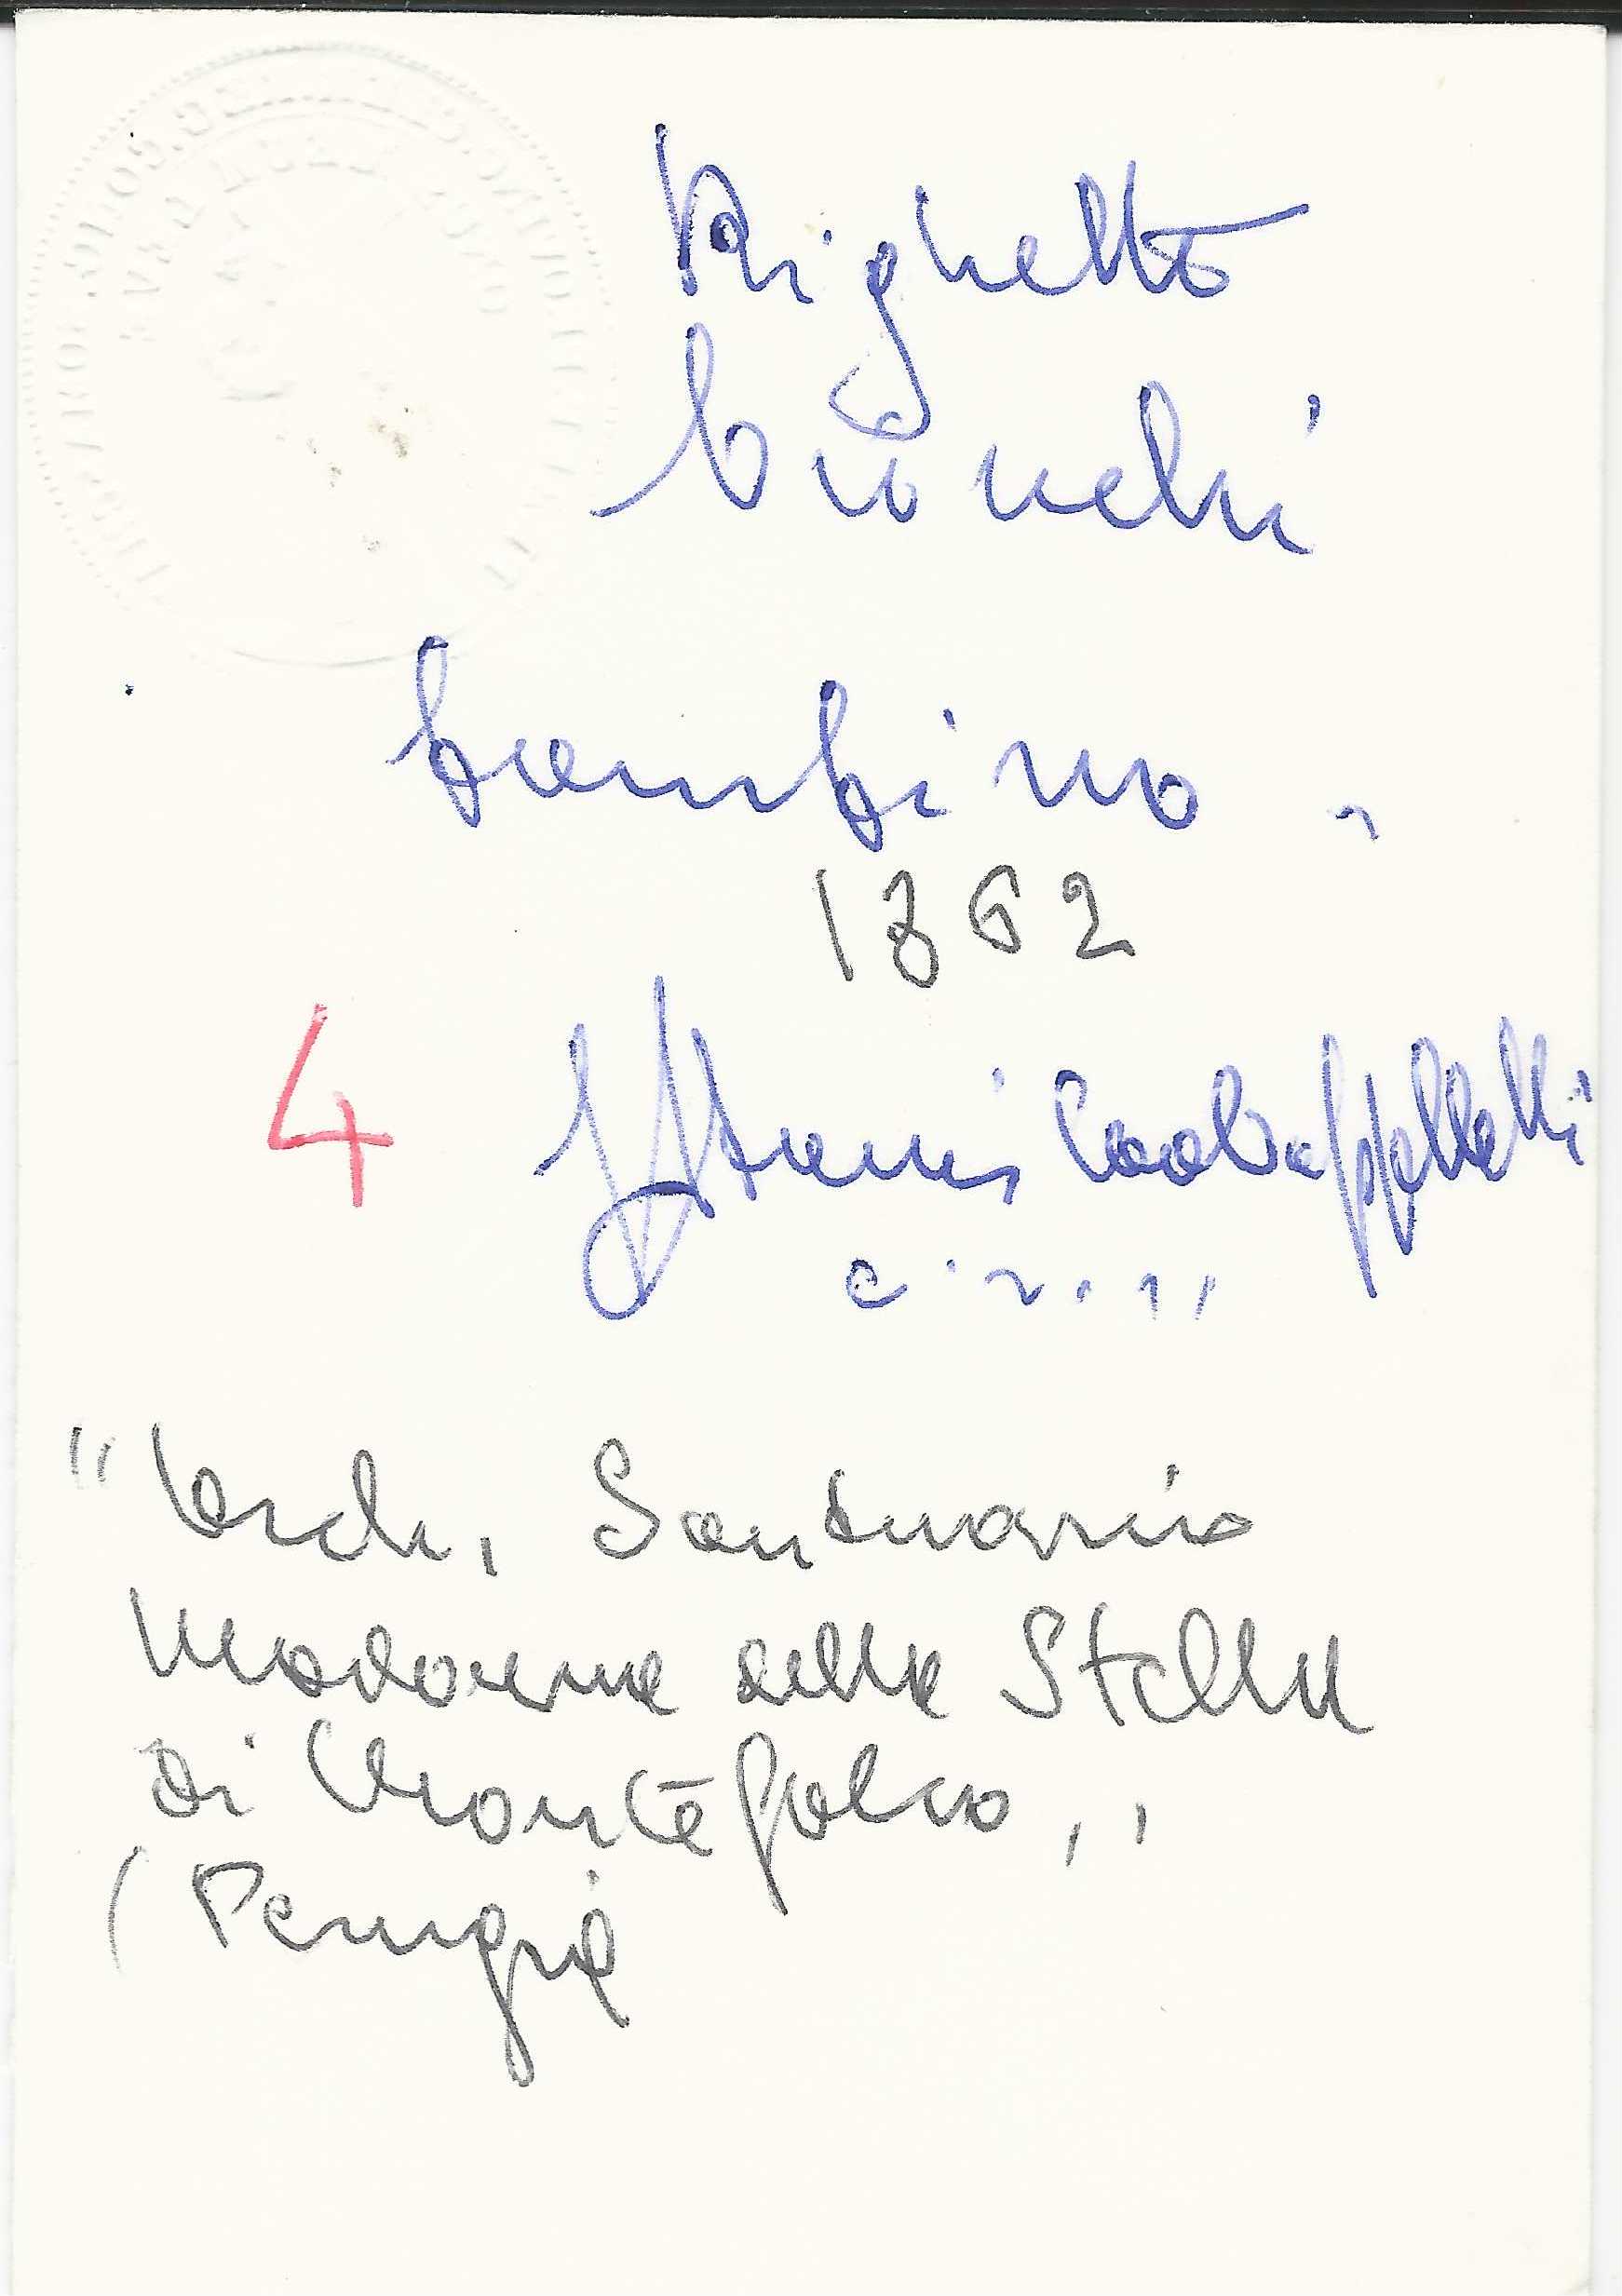 Righetto
bionchi
bambino.
1862
4
c. r. "
" Arch. Santuario
Madonna della Stella
di Montefalco, "
(Perugia